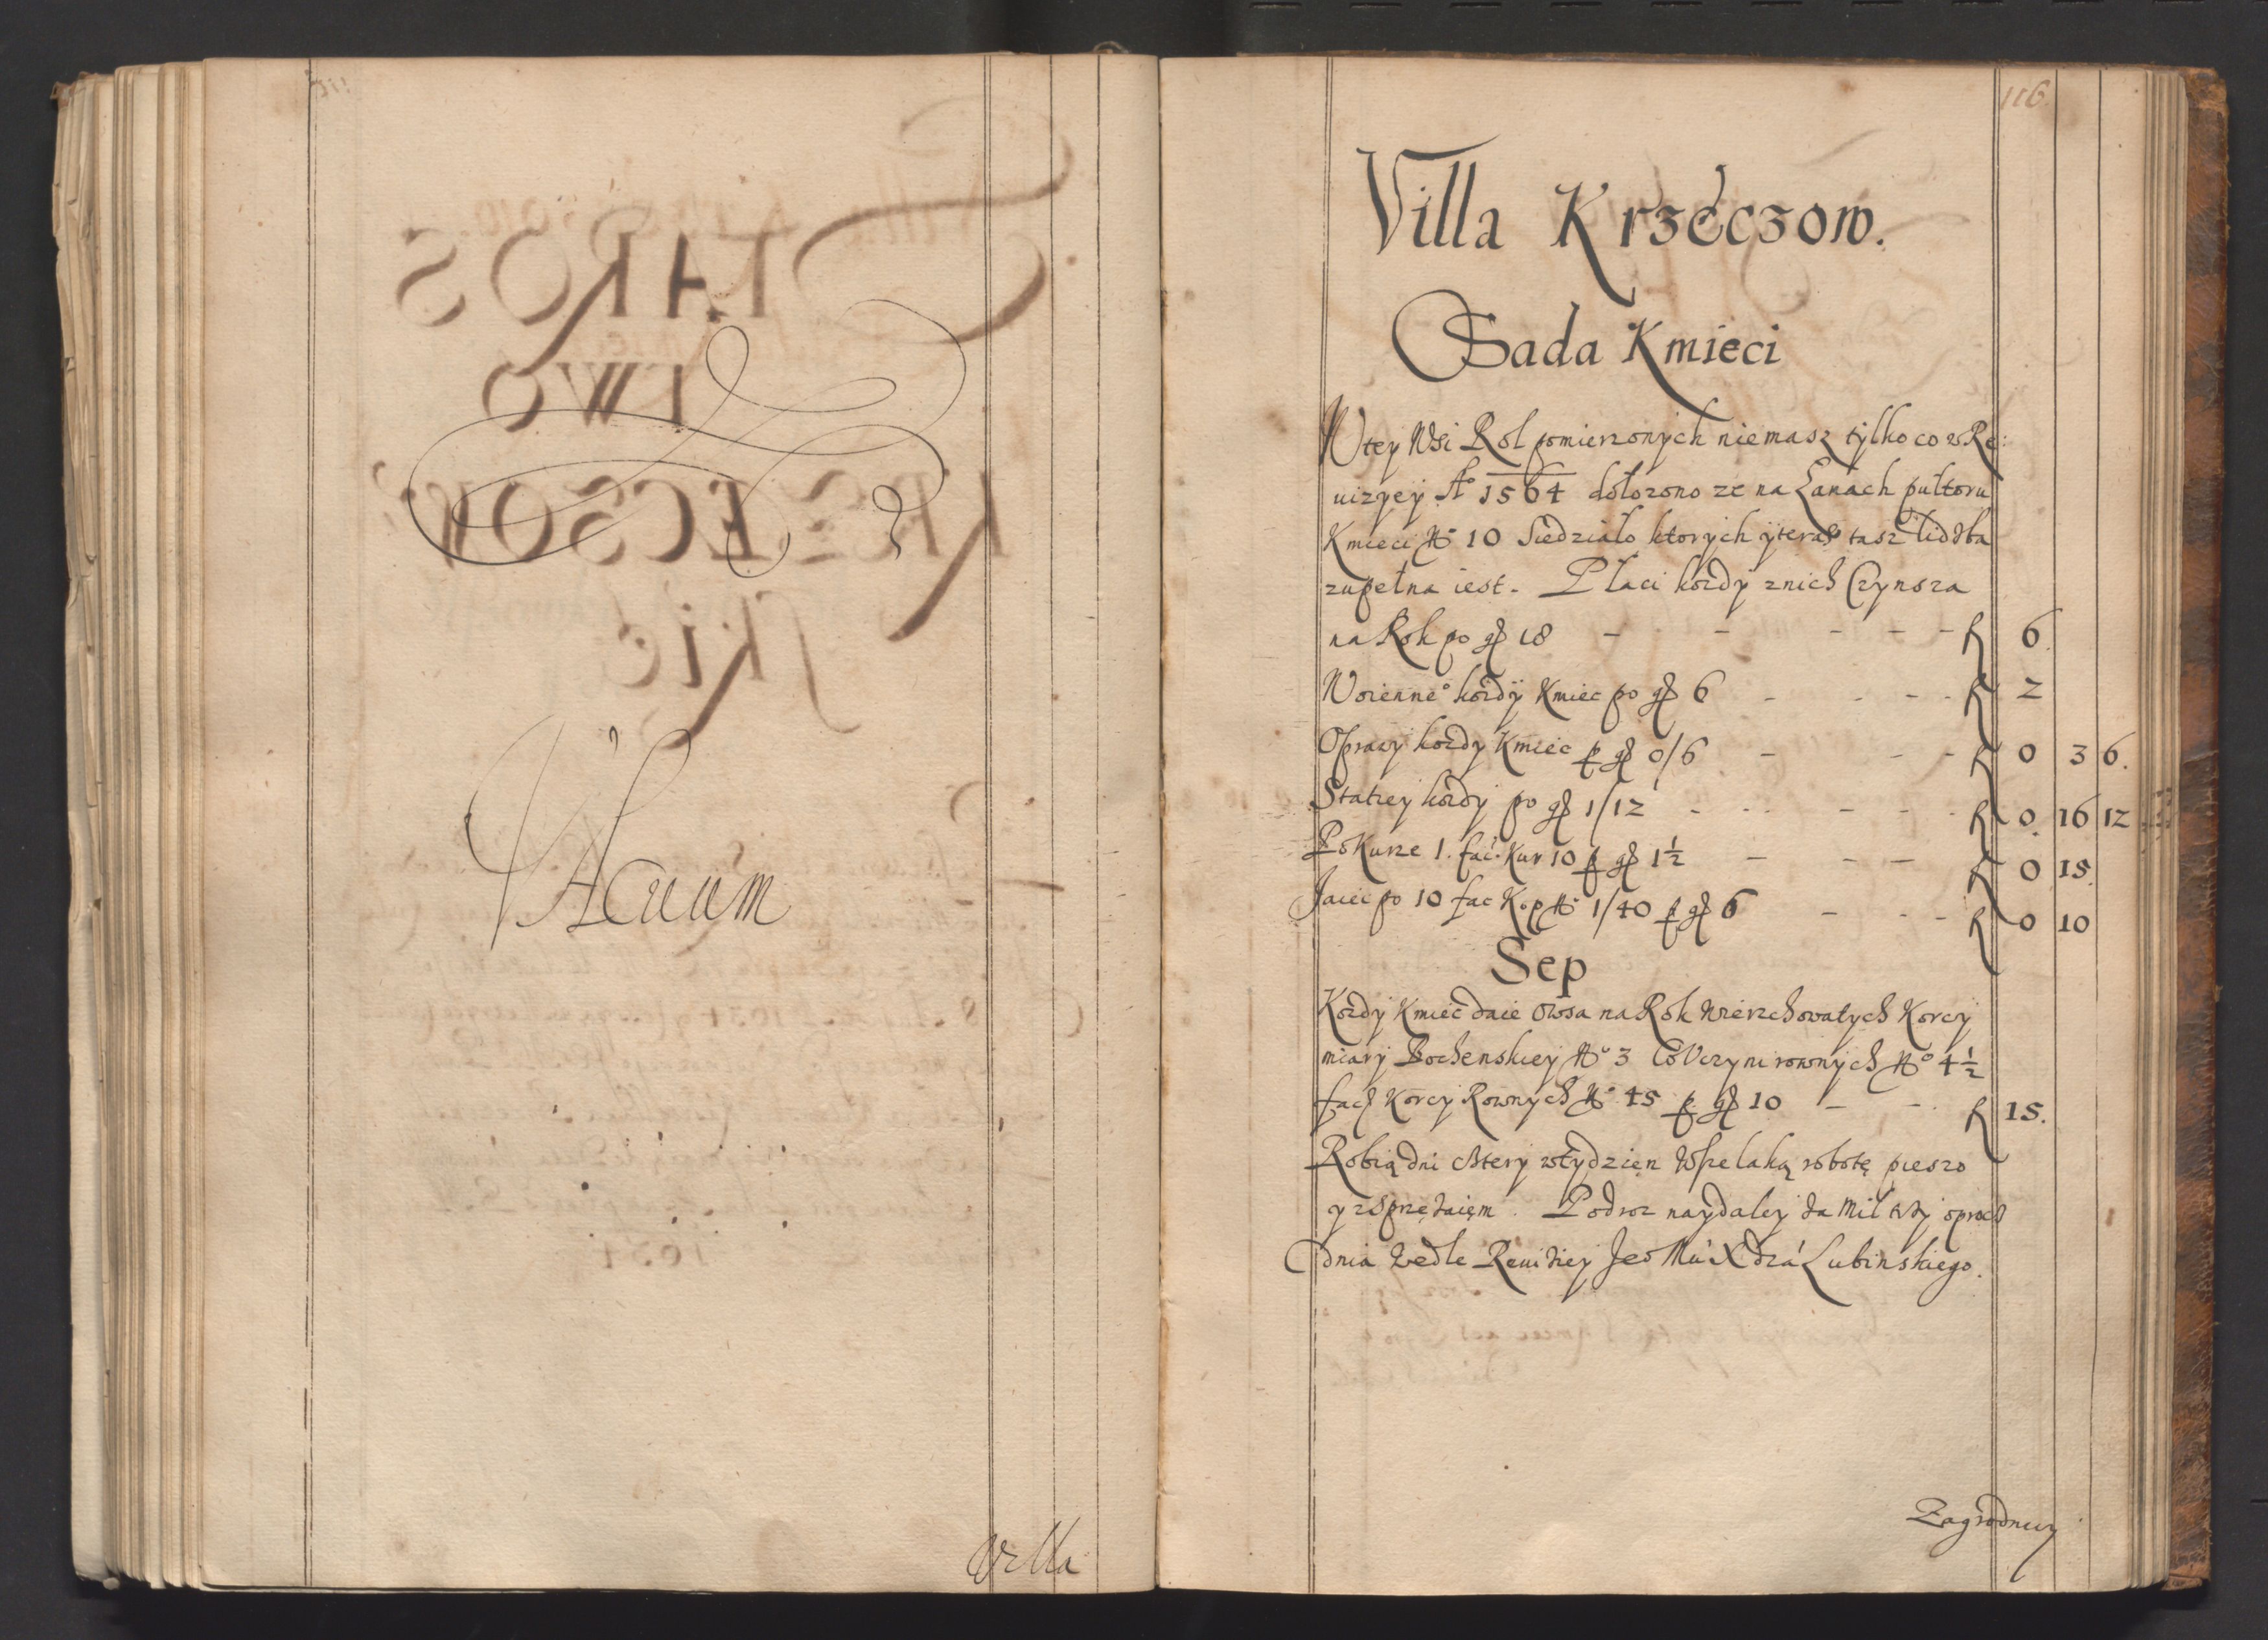 Vacuum
Villa
116.
Villa Krzeczow.
Osada Kmieci
W tey Wsi Rol pomierzonych niemasz tylko co w Re:
uizyey Aº 1564 dołozono ze na Łanach pułtoru
Kmieci Nº 10 Siedziało ktorych yteras tasz lidzba
zupełna iest. Płaci kozdy znich Czynsza
na Rok po gſ 18 - - - - - f 6.
Woienneº kozdy Kmiec po gſ 6 - - - - f 2
Oprawy kozdy Kmiec p gſ 0/6 - - - f 0 3 6.
Statzey kozdy po gſ 1/12 - - - - - f 0. 16 12
Po Kurze 1. fac. Kur 10 p gſ 1½ - - - f 0 15.
Jaiec po 10 fac Kop Nº 1/40 p gſ 6 - - - f 0 10
Sep
Kozdy Kmiec daie Owsa na Rok Wierzchowatych Korcy
miary Bochenskiey Nº 3 Co Vczyni rownych Nº 4½
facſ Korcy Rownych Nº 45 p gſ 10 - - f 15.
Robią dni cztery w tydzien Wszelaką robotę pieszo
y zSprzężaięm. Podroz naydaley za Mil trzy oprocz
dnia Wedle Reuiziey Jeº Mći X dza Lubinskiego.
Zagrodnicy